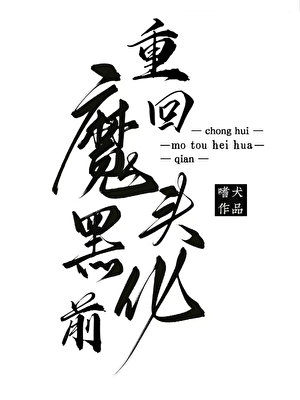 重回
魔头
黑化
前
— chong hui —
—mo tou hei hua—
— qian —
嗜犬
作品